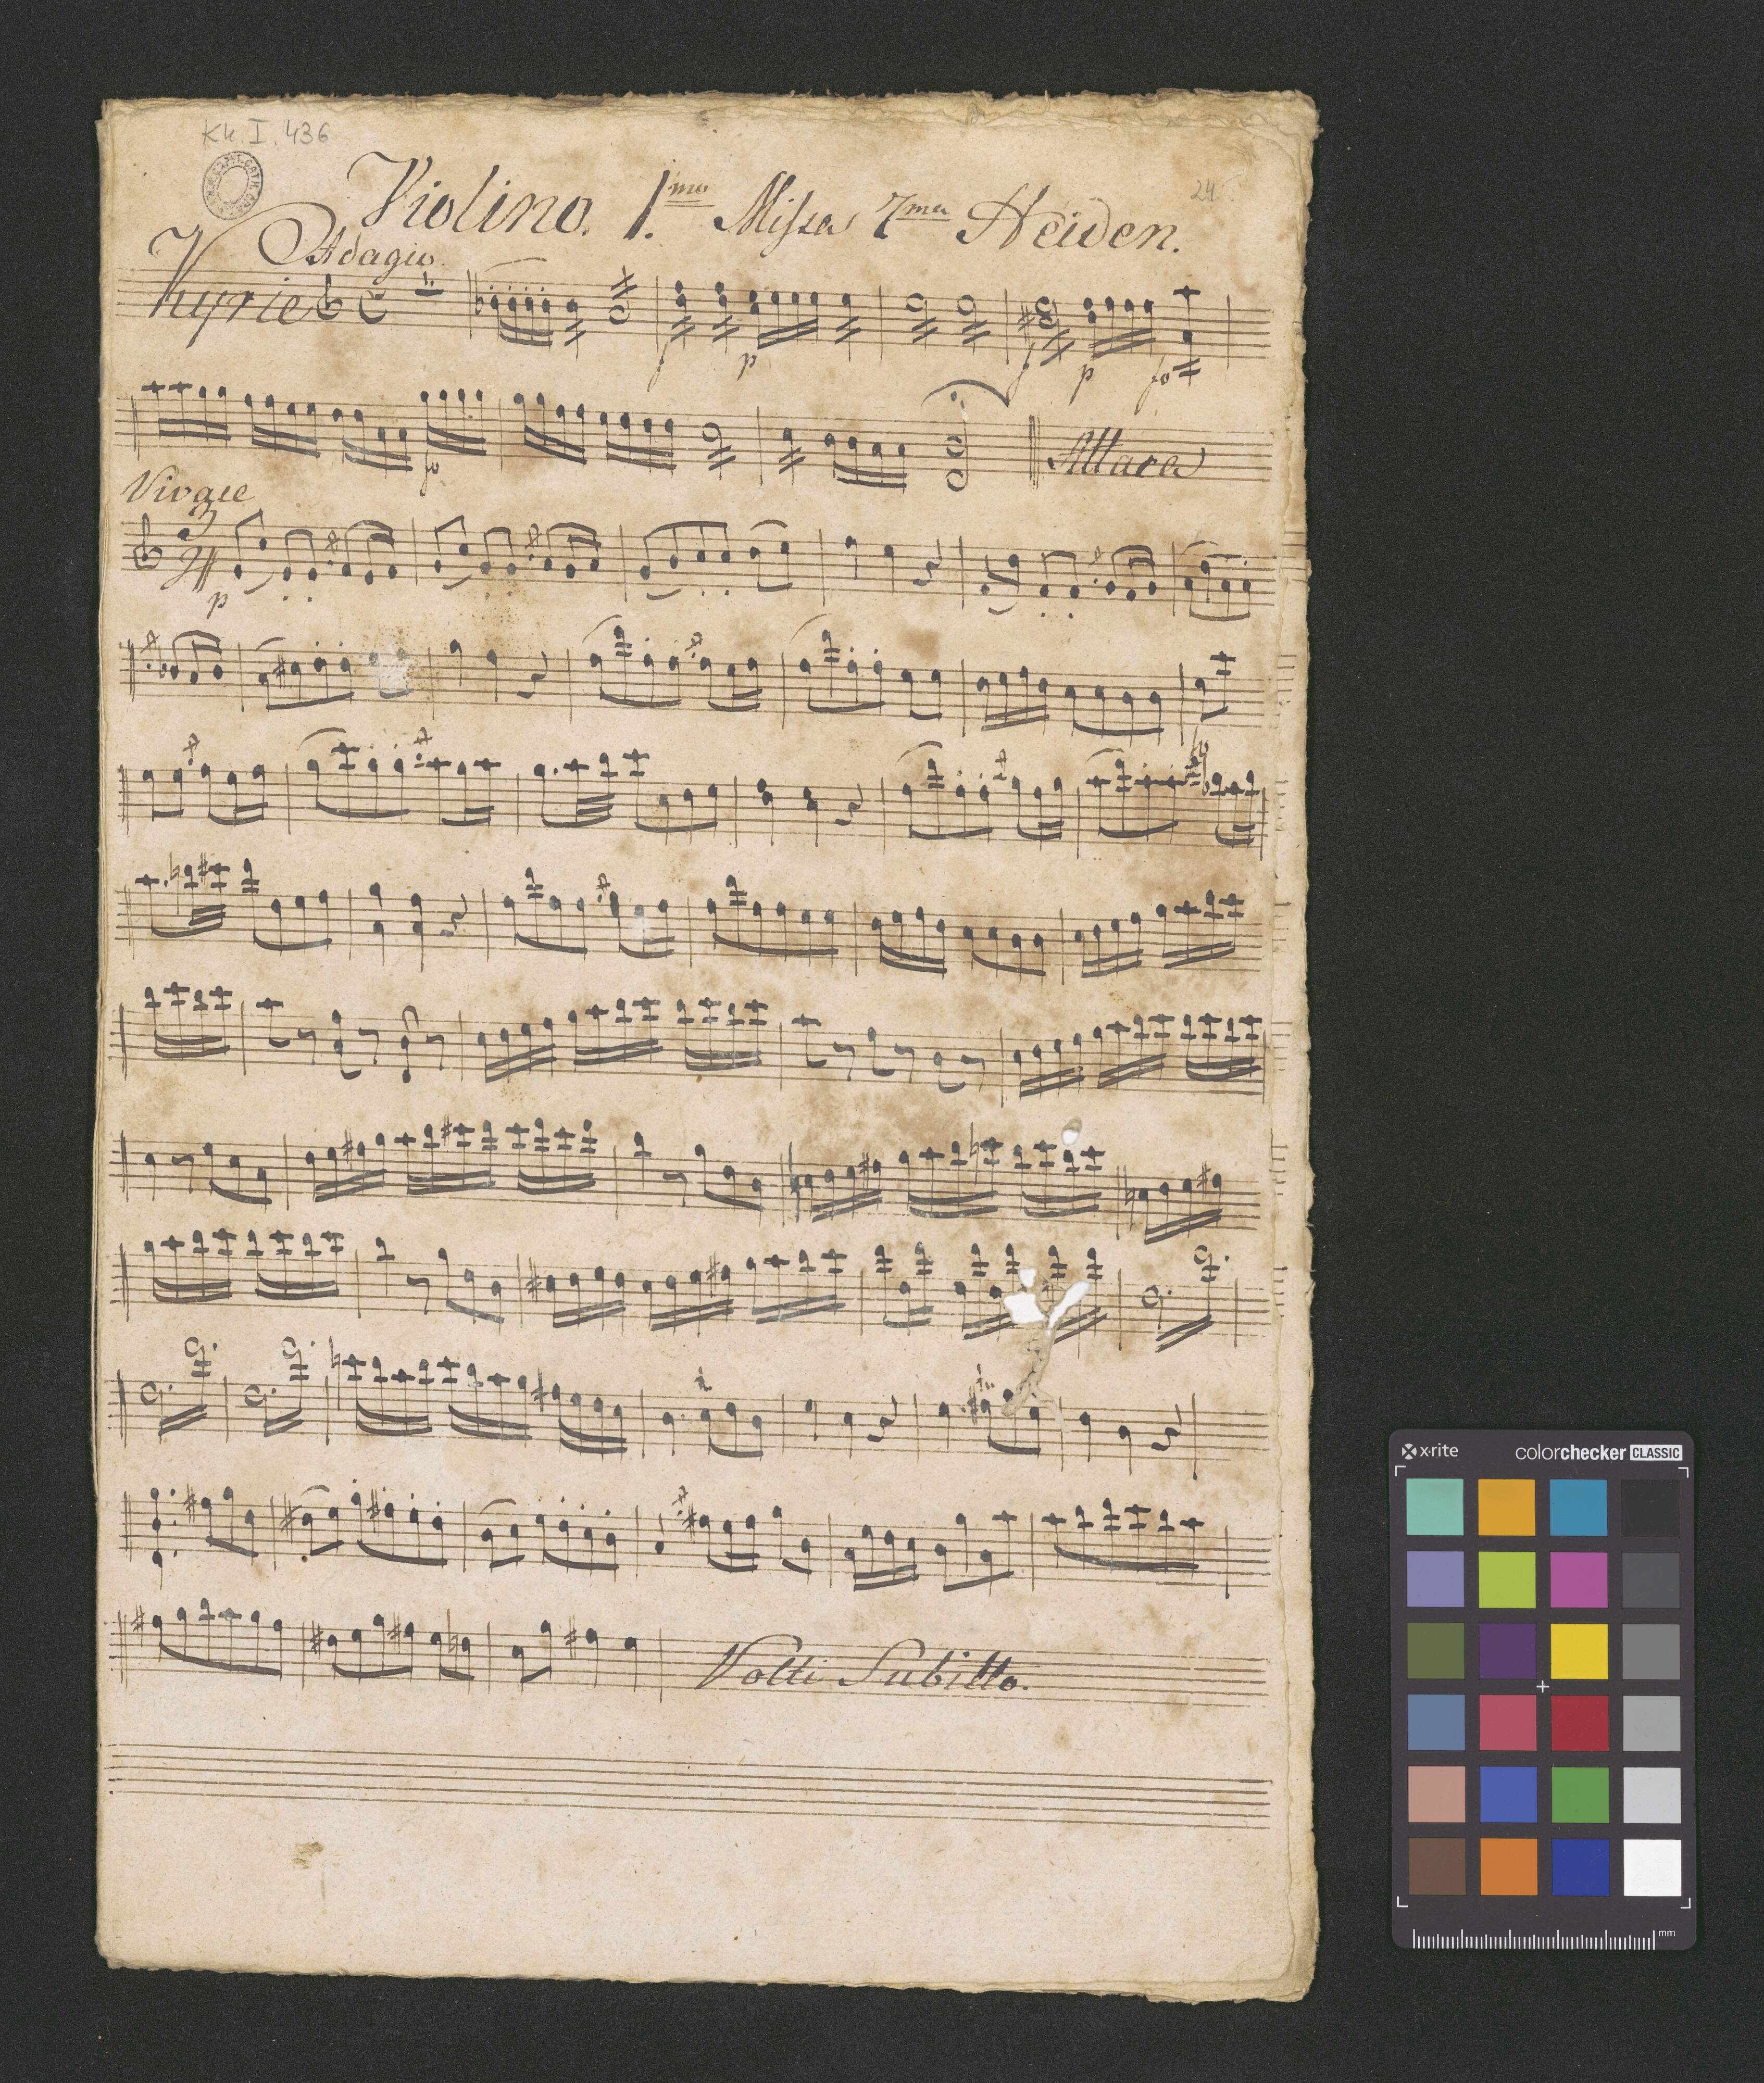 KK. I. 436
Violino. 1.mo Missa 7ma Heiden.
24
Adagio.
Kyrie
f p f p fo
fo Attaca
Vivace
3
4
p
Volti Subitto.
x-rite colorchecker CLASSIC
mm